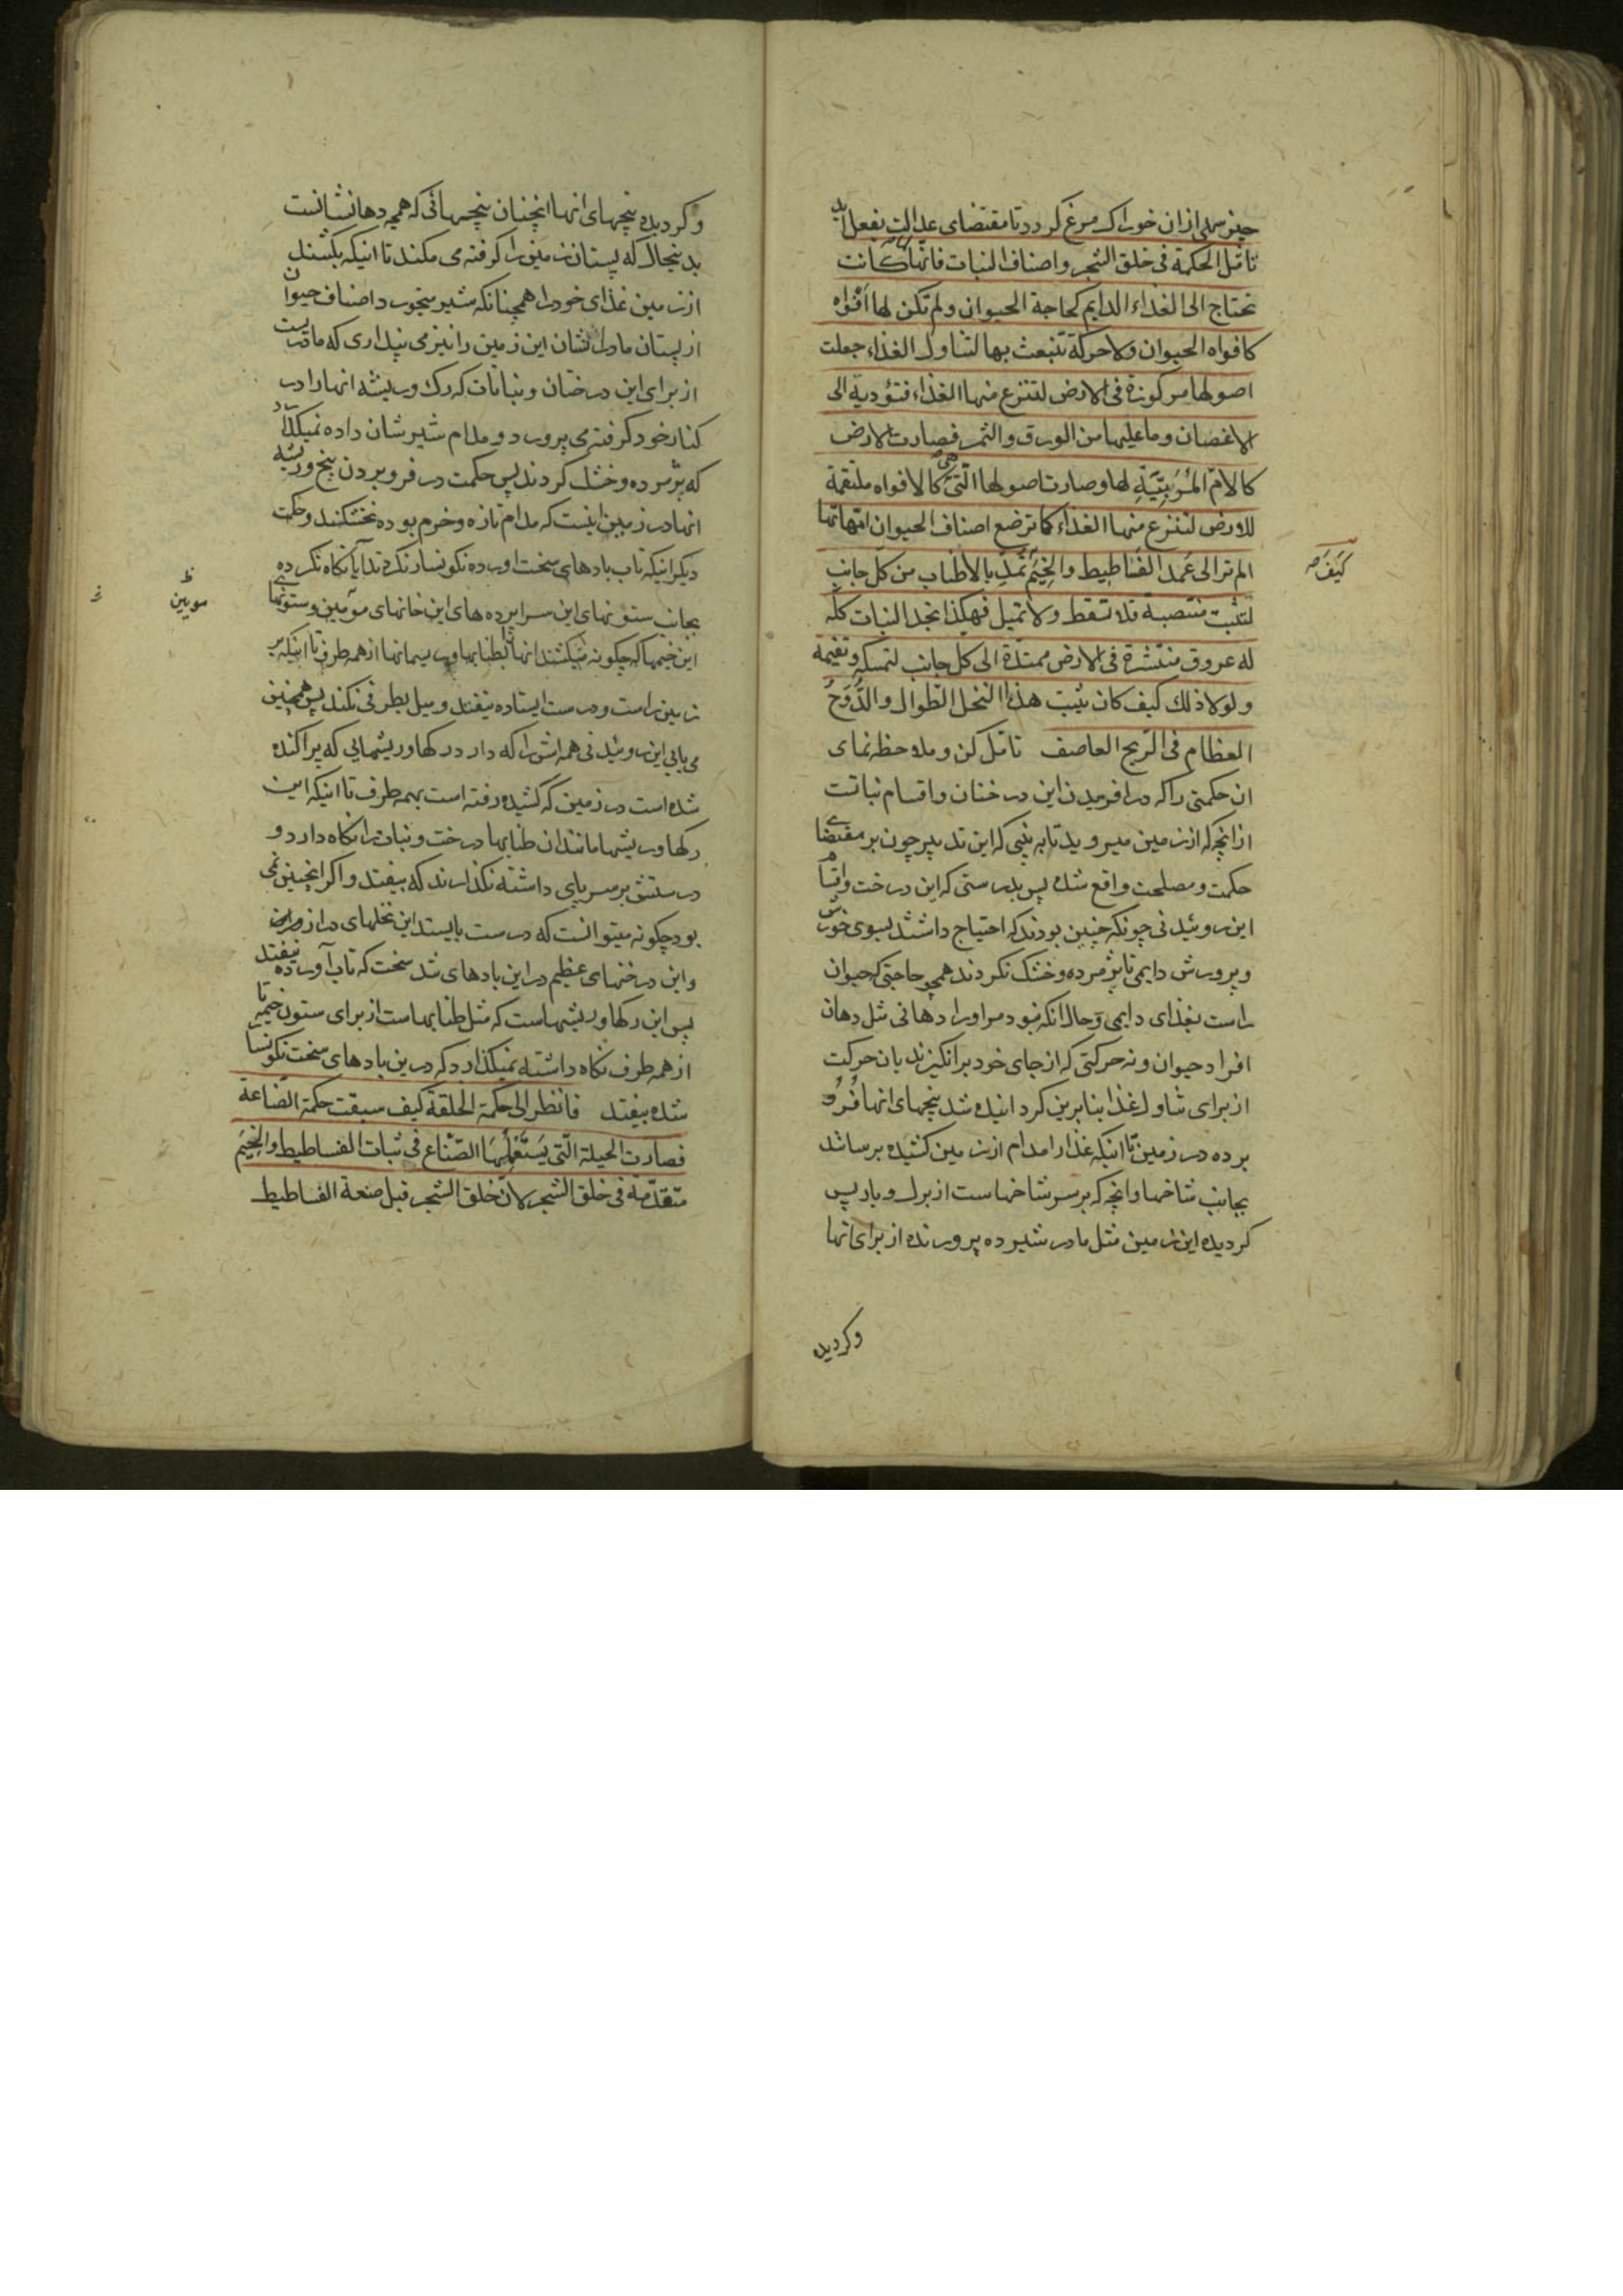 چیز سهلی از ان خوراک مرغ کردد تا مقتضای عدالت بفعل اید
تامّل الحکمة فی خلق الشجر واصناف النبات فانّها لمّا کانت
تحتاج الی الغذاء الدایم کحاجة الحیوان ولم تکن لها افواه
کافواه الحیوان ولا حرکة تنبعث بها لتناول الغذاء جعلت
اصولها مرکوزة فی الارض لتنزع منها الغذاء فتؤدیة الی
الاغصان وما علیها من الورق والثمر فصارت الارض
کالامّ المُرَبِّیَةِ لها وصارت اصولها الّتی هی کالافواه ملتقمة
للارض لتنزع منها الغذاء کما ترضع اصناف الحیوان امّهاتها
الم تر الی عُمد الفساطیط والخِیَم تُمَدّ بالاطناب من کل جانب
کَیفَ صح
لتثبت منتصبة فلا تسقط ولا تمیل فهکذا تجد النبات کلّه
له عروق منتشرة فی الارض ممتدّة الی کل جانب لتمسکه وتقیمة
ولولا ذلک کیف کان یثبت هذا النخل الطوال والدَّوحُ
العظام فی الرّیح العاصف تامّل کن وملاحظه نمای
ان حکمتی را که در افریدن این درختان واقسام نباتت
از انچه که از زمین میروید تا به بینی که این تدبیر چون بر مقتضای
حکمت ومصلحت واقع شده پس بدرستی که این درخت واقسام
این روئیدنی چونکه چنین بودند که احتیاج داشتند بسوی خورش
وپرورش دایمی تا پژمرده وخشک نکردند همچو حاجتی که حیوان
راست بغذای دایمی وحال انکه نبود مر اورا دهانی مثل دهان
افراد حیوان ونه حرکتی که از جای خود برانکیزند بان حرکت
از برای تناول غذا بنابرین کردانیده شد بیخهای انها فُرُو
برده در زمین تا اینکه غذا را مدام از زمین کشیده برسانند
بجانب شاخها وانچه که بر سر شاخهاست از برک وبار پس
کردیده این زمین مثل مادر شیر ده پرورنده از برای انها
وکردیده
وکردیده بیخهای انها انچنان بیخهائی که همچه دهانشانست
بدینحال که پستان زمین را کرفته می مکند تا اینکه بکشند
از زمین غذای خود را همچنانکه شیر میخورد اصناف حیوان
از پستان مادرانشان این زمین را نیز می پنداری که مادریست
از برای این درختان ونباتات که رک وریشه انها را در
کنار خود کرفته می پرورد ومدام شیرشان داده نمیکذارد
که پژمرده وخشک کردند پس حکمت در فرو بردن بیخ وریشه
انها در زمین اینست که مدام تازه وخرم بوده نخشکند وحکمت
دیکر اینکه تاب بادهای سخت اورده نکونسار نکردند ایا نکاه نکرده
بجانب ستونهای این سراپرده های این خانهای موئین وستونهای
ظ
مویین
این خیمها که چکونه میکشند انها را بطنابها وریسمانها از همه طرف تا اینکه بر
زمین راست ودرست ایستاده نیفتد ومیل بطرفی نکند پس همچنین
می یابی این روئیدنی همه اش را که دارد رکها وریشهائی که پراکنده
شده است در زمین که کشیده رفته است بهمه طرف تا اینکه این
رکها وریشها مانند ان طنابها درخت ونبات را نکاه دارد و
درستش بر سر پای داشته نکذارند که بیفتد واکر انچنین نمی
بود چکونه میتوانست که درست بایستد این نخلهای دراز دراز
واین درختهای عظیم در این بادهای تند سخت که تاب آورده نیفتد
پس این رکها وریشهاست که مثل طنابهاست از برای ستون خیمه تا
از همه طرف نکاه داشته نمیکذارد که درین بادهای سخت نکونسار
شده بیفتد فانظر الی حکمة الخلقة کیف سبقت حکمة الصّناعة
فصارت الحیلة الّتی یَستَعمِلُهَا الصّنّاع فی ثبات الفساطیط والخِیَم
متقدّمة فی خلق الشجر لانّ خلق الشجر قبل صنعة الفساطیط